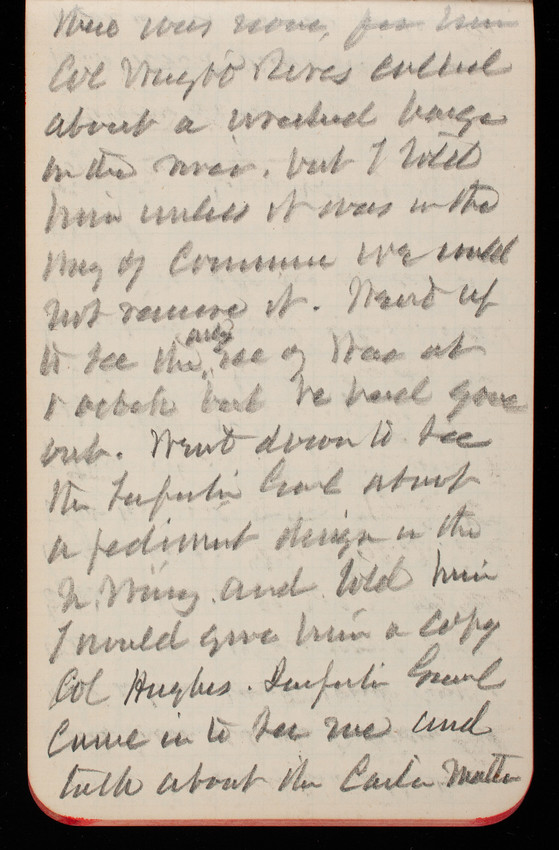 there was none,
Col Wright Rives called
about a wrecked barge
in the river. but I told
him unless it was in the
way of Commerce we could
not remove it. Went up
to see the Secy of War at
o clock but he had gone
out. Went down to see
the Inspector Genl about
a pediment design in the
N. Wing. and told him
I would give him a copy
Col Hughes. Inspector Genl
Came in to see me and
talk about the Carter Matter